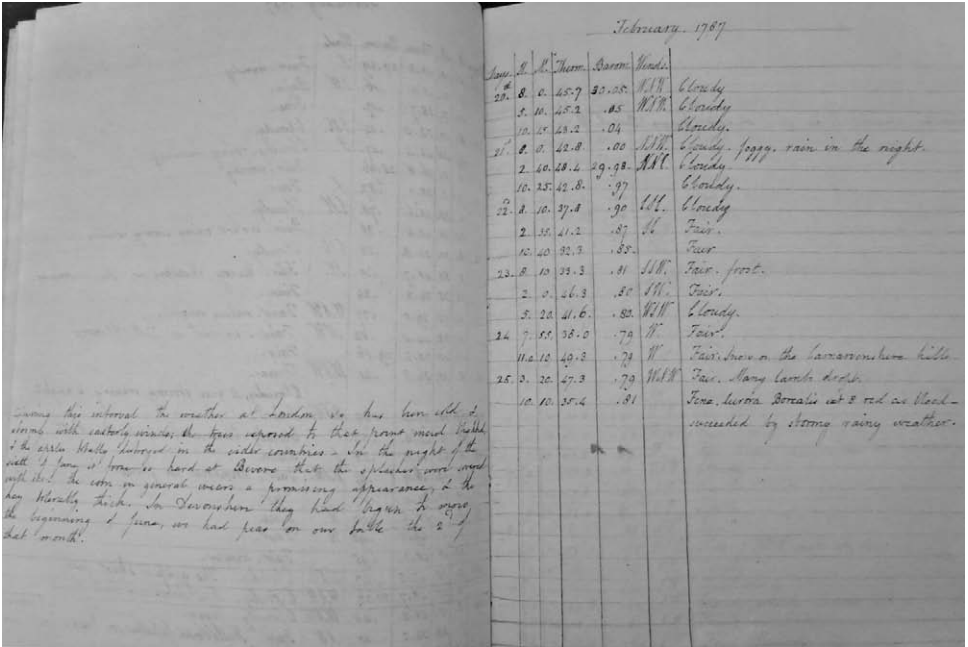 During this interval the weather at London &c has been cold &
stormy with easterly winds; the trees exposed to that point much
& the apples totally destroyed in the cider countries. In the night of the
sixth of June it froze so hard at that the were covered
with ice. the corn in general wears a promising appearance, & the
hay literally thick. In Devonshire they had begun to mow
the beginning of June, we had peas on our table the 2 of
that month.
February. 1787
Days H. M. Therm Barom Winds.
20th 8. 0. 45.7 30.05. WNW Cloudy
5. 10. 45.2 .05 WNW. Cloudy
10. 15 43.2 .04 Cloudy.
21st 8. 0. 42.8. .00 NNW. Cloudy. foggy. rain in the night.
2 40. 48.4 29.98. NNE. Cloudy
10. 25. 42.8. .97 Cloudy.
22d. 8. 10. 37.8 .90 ESE. Cloudy
2. 35. 41.2 .87 SE Fair.
10. 40 32.3 .85. Fair
23. 8. 10 33.3 .81 SSW. Fair. frost.
2. 0. 46.3 .80 SW. Fair.
5. 20. 41.6. .80. WSW Cloudy.
24 7. 55. 38.0 .79 W. Fair.
10. 49.3 .79 W Fair. Snow on the Carnarvonshire hills
25. 3. 20. 47.3 .79 WNW Fair. Many lambs dropt.
10. 10. 35.4 .81 Fine. Aurora Borealis red as blood—
succeeded by stormy rainy weather.